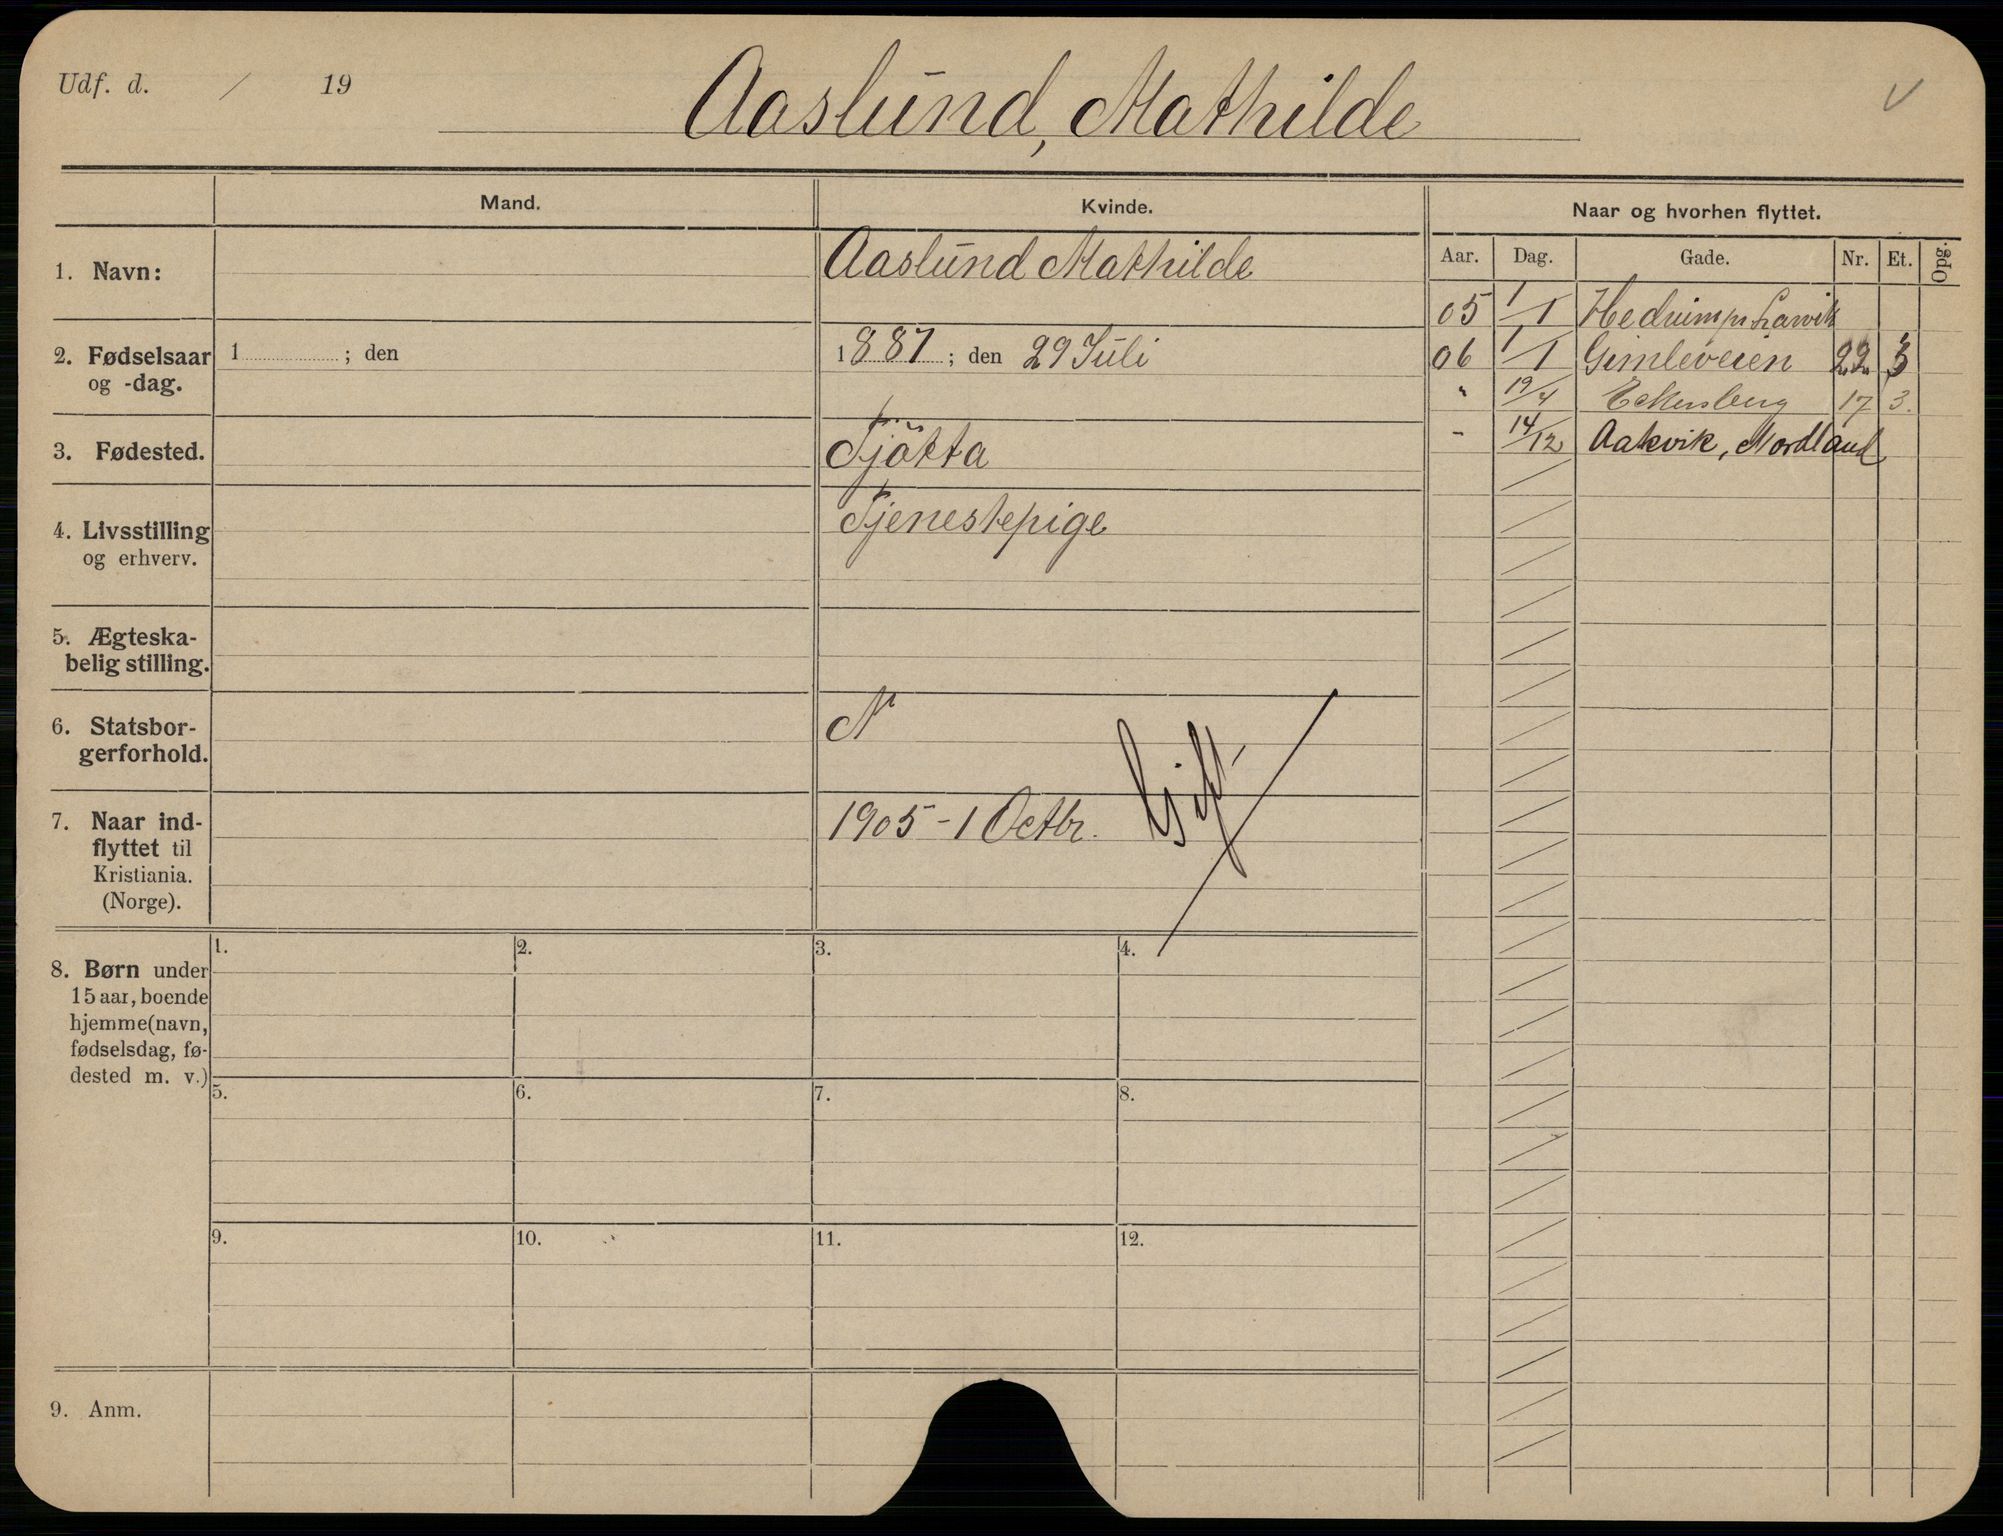 Udf. d. / 19
Aaslund, Mathilde
V
Mand.
Kvinde.
Naar og hvorhen flyttet.
Aar. Dag. Gade. Nr. Et. Opg.
1. Navn:
Aaslund Mathilde
2. Fødselsaar
og -dag.
1 ; den
1887; den 29 Juli
3. Fødested.
Tjötta
4. Livsstilling
og erhverv.
Tjenestepige
5. Ægteska-
belig stilling.
6. Statsbor-
gerforhold.
N
7. Naar ind-
flyttet til
Kristiania.
(Norge).
1905 - 1 Octbr.
Gift
8. Børn under
15 aar, boende
hjemme (navn,
fødselsdag, fø-
dested m. v.)
1. 2. 3. 4.
5. 6. 7. 8.
9. 10. 11. 12.
9. Anm.
05 1/1 Hedrum pr Larvik
06 1/1 Gimleveien 22 3
" 19/4 Eckersberg 17 3.
- 14/12 Aakvik, Nordland